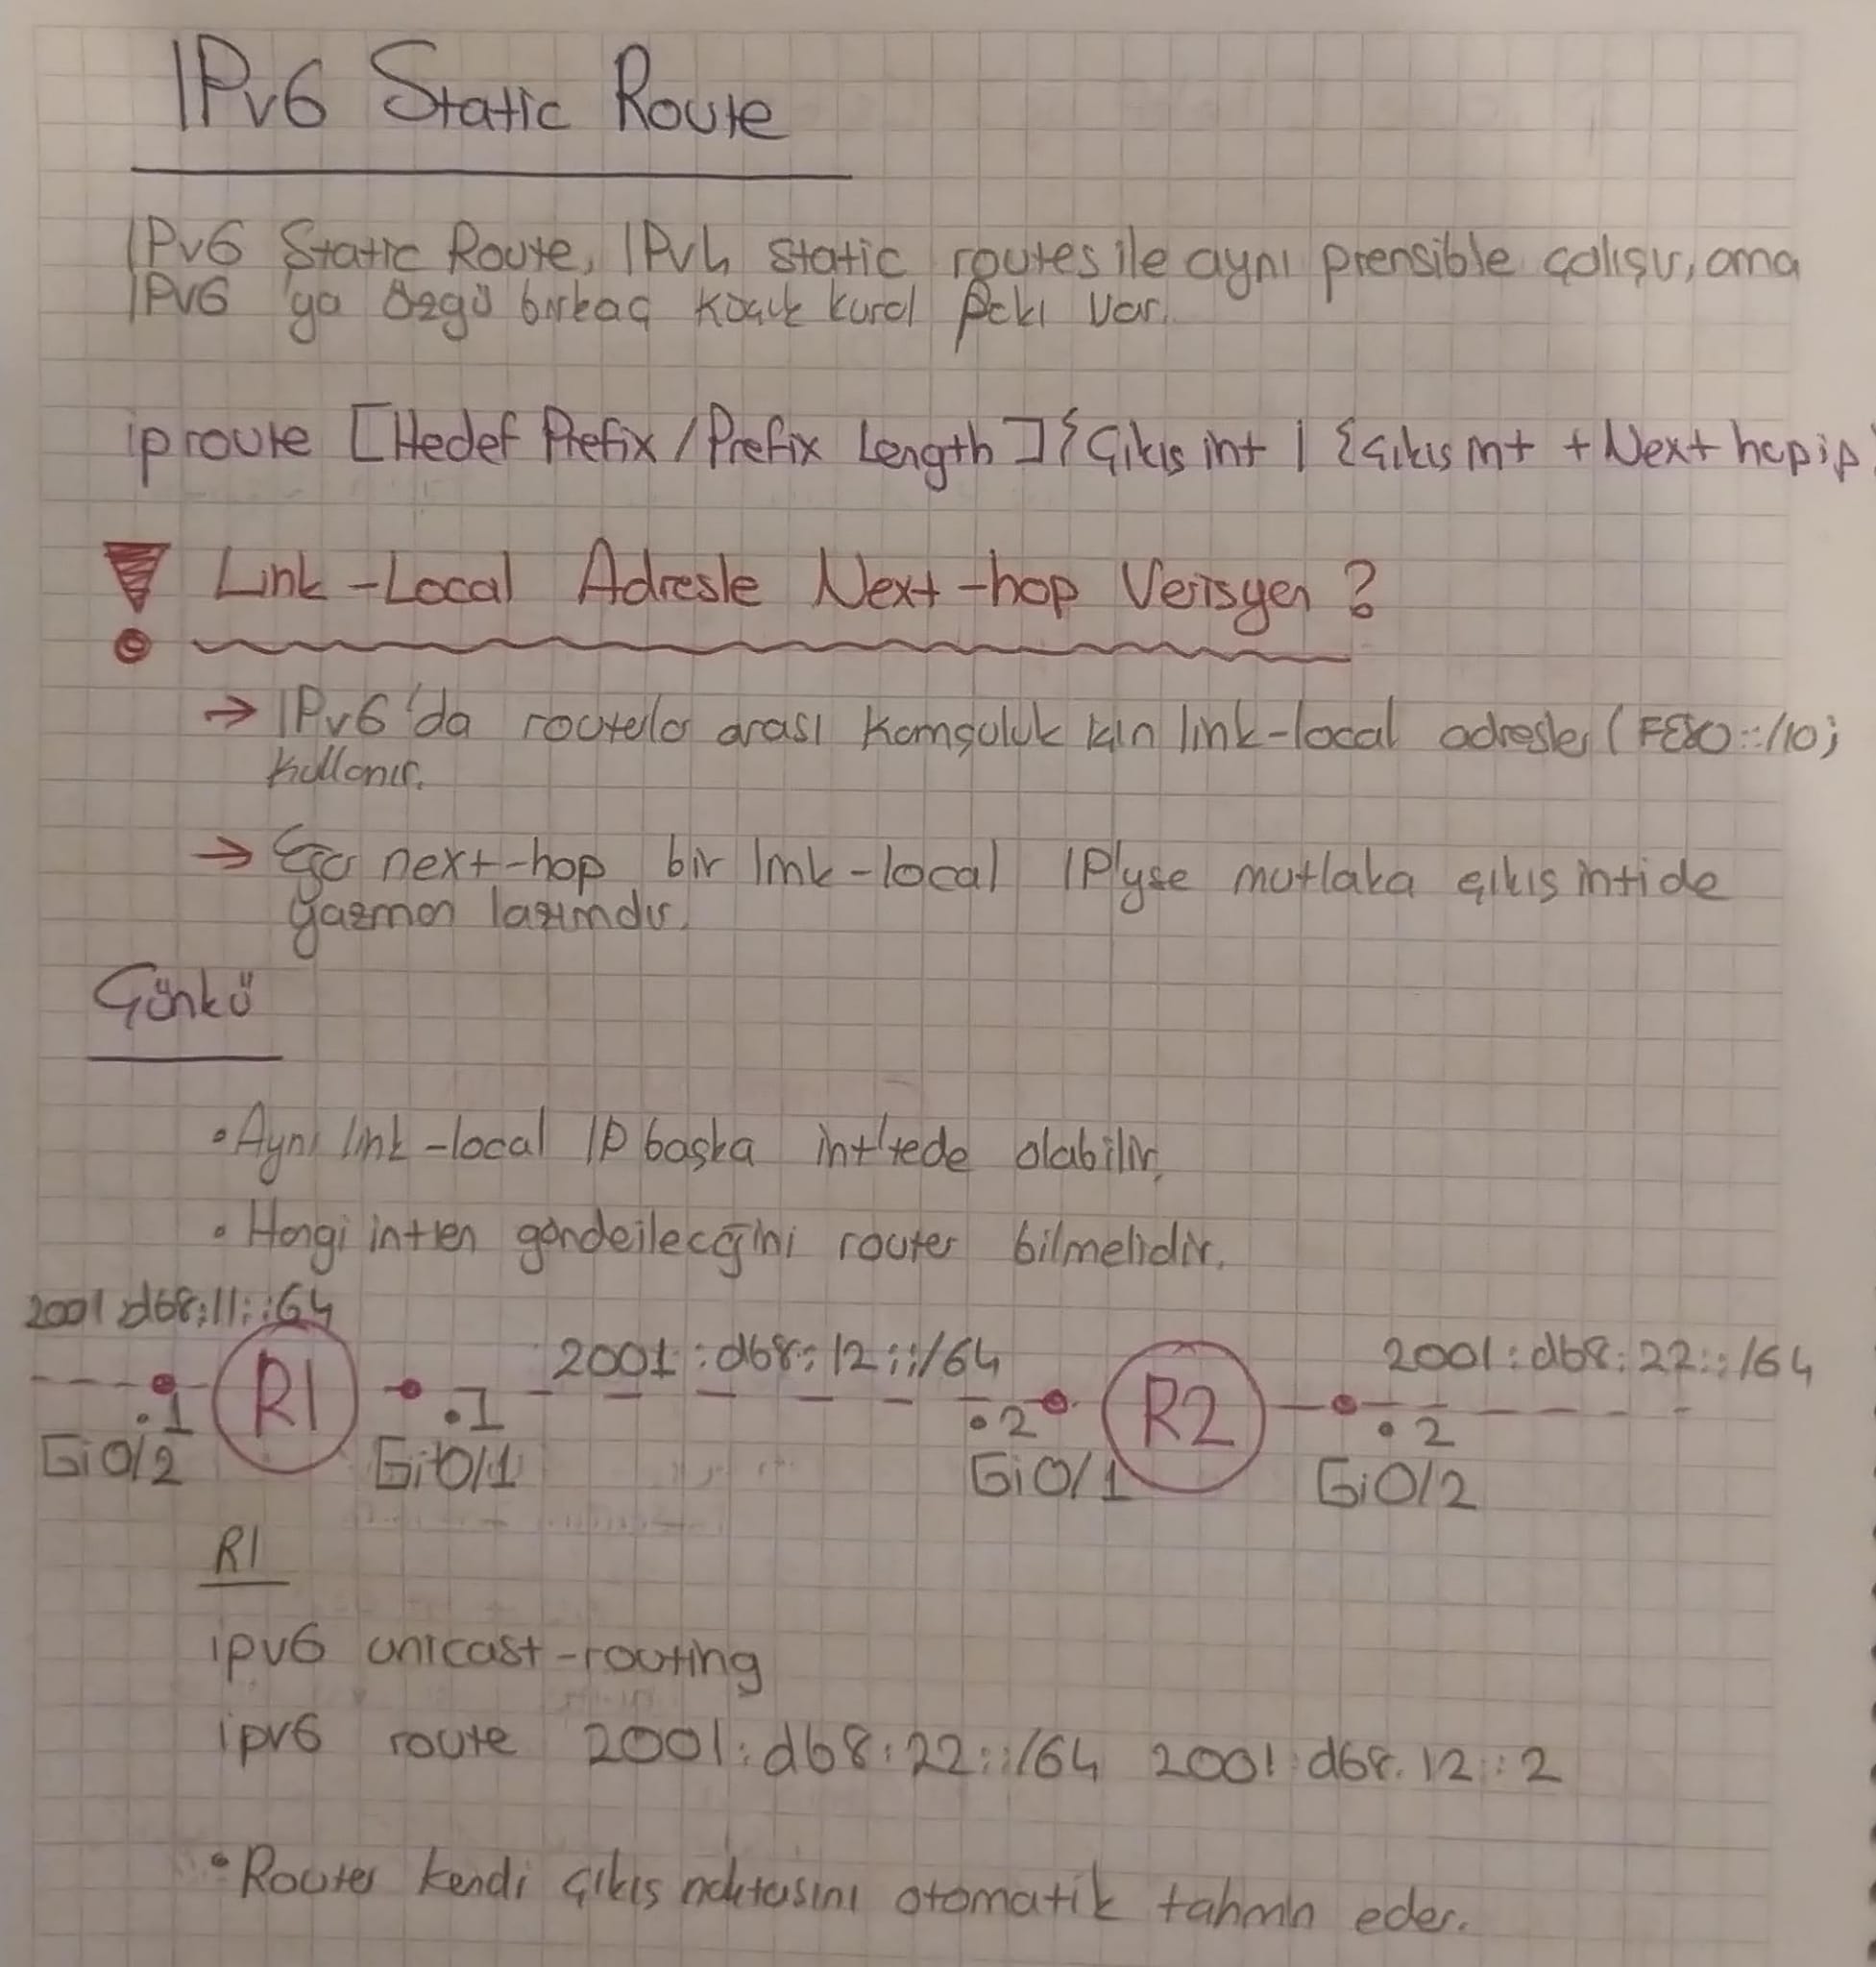 IPv6 Static Route
IPv6 Static Route, IPv4 static routes ile aynı prensible çalışır, ama
IPv6 'ya özgü birkaç küçük kural farkı var.
ip route [Hedef Prefix/Prefix Length] {Çıkış int | {Çıkış int + Next hop ip}
! Link-Local Adresle Next-hop Verisyen ?
→ IPv6'da routerlar arası komşuluk için link-local adresler (FE80::/10)
kullanır.
→ Eğer next-hop bir link-local IP'yse mutlaka çıkış inti de
yazman lazımdır.
Çünkü
• Aynı link-local IP başka int'tede olabilir.
• Hangi intten gönderileceğini router bilmelidir.
2001:db8:11::64
2001:db8:12::/64
2001:db8:22::/64
R1
R2
.1
.1
.2
.2
Gi0/2
Gi0/1
Gi0/1
Gi0/2
R1
ipv6 unicast-routing
ipv6 route 2001:db8:22::/64 2001:db8:12::2
• Router kendi çıkış noktasını otomatik tahmin eder.